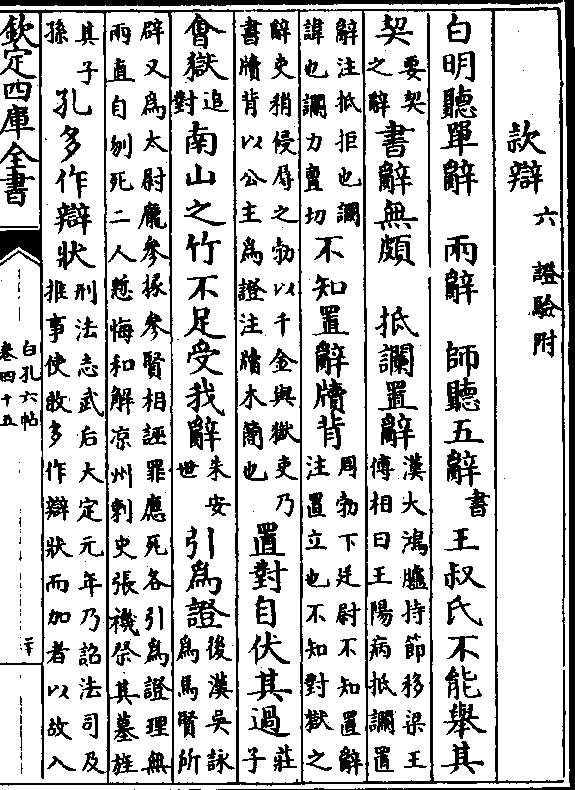 欵辯六證驗附
白明聽單辭 兩辭 師聽五辭書 王叔氏不能舉其
契要契之辭 書辭無頗 抵讕置辭漢大鴻臚持節移梁王傅相曰王陽病抵讕置
辭注抵拒也讕諱也讕力亶切 不知置辭牘背周勃下廷尉不知置辭注置立也不知對獄之
辭吏稍侵辱之勃以千金與獄吏乃書牘背以公主為證注牘木簡也 置對自伏其過莊子
會獄追對 南山之竹不足受我辭朱安世 引為證後漢吳詠為馬賢所
辟又為太尉龐參掾參賢相誣罪應死各引為證理無兩直自刎死二人慙悔和解凉州刺史張禨祭其墓旌
其子孫 孔多作辯狀刑法志武后大定元年乃詔法司及推事使敢多作辯狀而加者以故入
欽定四庫全書
白孔六帖卷四十五
二十